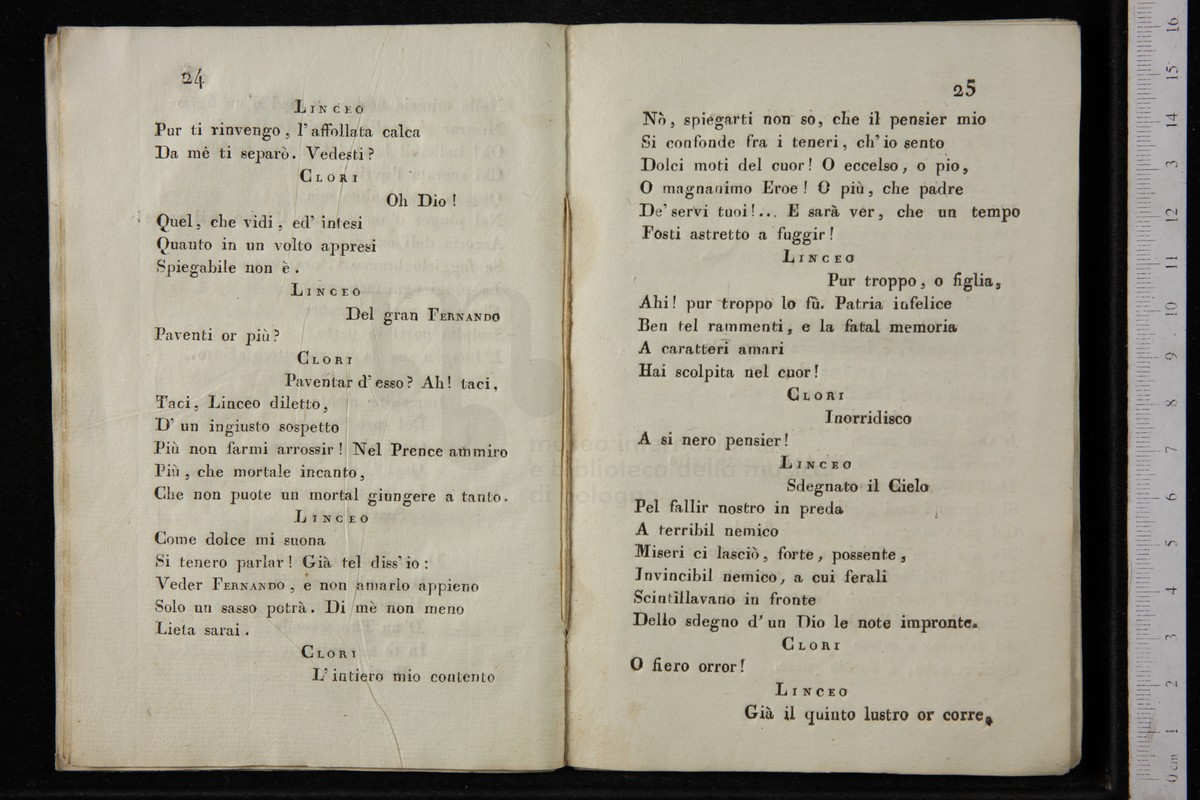 24
LINCEO
Pur ti rinvengo, l'affollata calca
Da mè ti separò. Vedesti?
CLORI
Oh Dio!
Quel, che vidi, ed' intesi
Quanto in un volto appresi
Spiegabile non è.
LINCEO
Del gran FERNANDO
Paventi or più?
CLORI
Paventar d'esso? Ah! taci,
Taci, Linceo diletto,
D' un ingiusto sospetto
Più non farmi arrossir! Nel Prence ammiro
Più, che mortale incanto,
Che non puote un mortal giungere a tanto.
LINCEO
Come dolce mi suona
Si tenero parlar! Già tel diss' io:
Veder FERNANDO, e non amarlo appieno
Solo un sasso potrà. Di mè non meno
Lieta sarai.
CLORI
L' intiero mio contento
25
Nò, spiegarti non so, che il pensier mio
Si confonde fra i teneri, ch' io sento
Dolci moti del cuor! O eccelso, o pio,
O magnanimo Eroe! O più, che padre
De' servi tuoi!... E sarà ver, che un tempo
Fosti astretto a fuggir!
LINCEO
Pur troppo, o figlia,
Ahi! pur troppo lo fù. Patria infelice
Ben tel rammenti, e la fatal memoria
A caratteri amari
Hai scolpita nel cuor!
CLORI
Inorridisco
A si nero pensier!
LINCEO
Sdegnato il Cielo
Pel fallir nostro in preda
A terribil nemico
Miseri ci lasciò, forte, possente,
Invincibil nemico, a cui ferali
Scintillavano in fronte
Dello sdegno d' un Dio le note impronte.
CLORI
O fiero orror!
LINCEO
Già il quinto lustro or corre,
museo internazionale
e biblioteca della musica
di bologna
0 cm 1 2 3 4 5 6 7 8 9 10 11 12 13 14 15 16